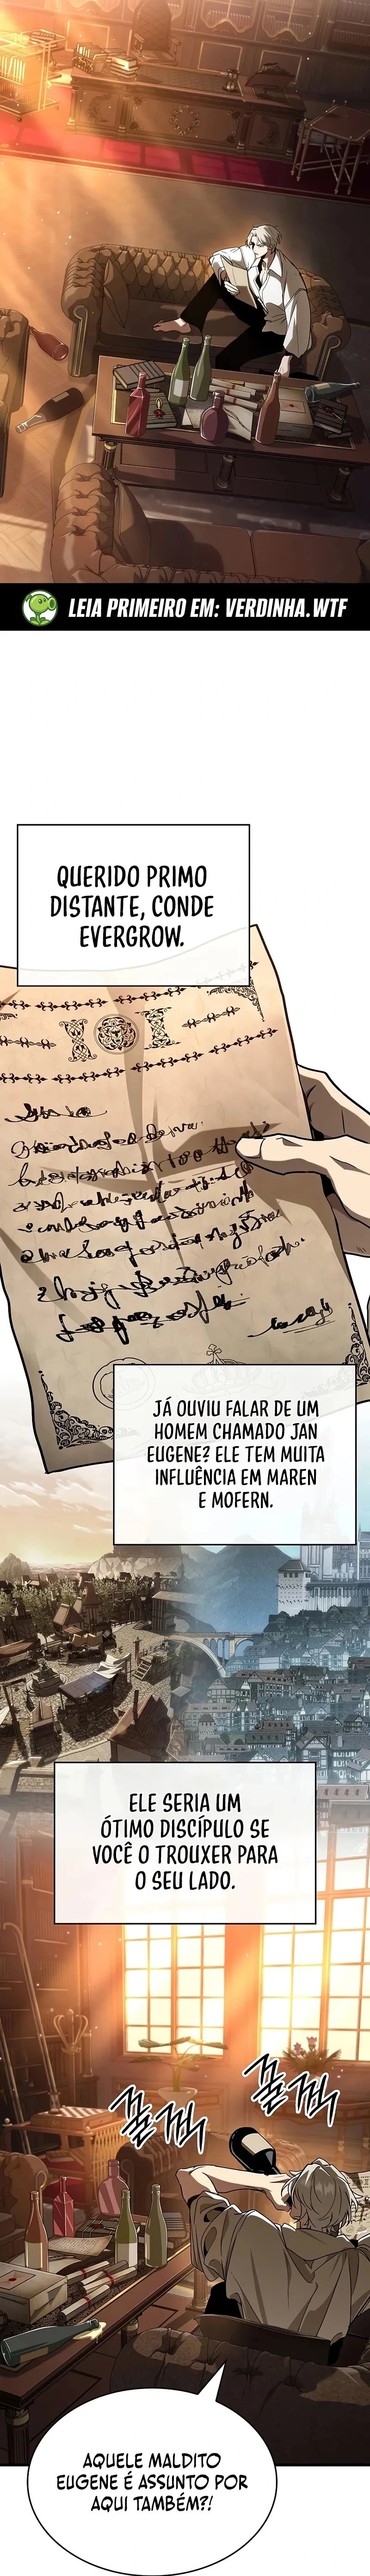 LEIA PRIMEIRO EM: VERDINHA.WTF
QUERIDO PRIMO
DISTANTE, CONDE
EVERGROW.
JÁ OUVIU FALAR DE UM
HOMEM CHAMADO JAN
EUGENE? ELE TEM MUITA
INFLUÊNCIA EM MAREN
E MOFERN.
ELE SERIA UM
ÓTIMO DISCÍPULO SE
VOCÊ O TROUXER PARA
O SEU LADO.
꿀꺽
꿀꺽
AQUELE MALDITO
EUGENE É ASSUNTO POR
AQUI TAMBÉM?!